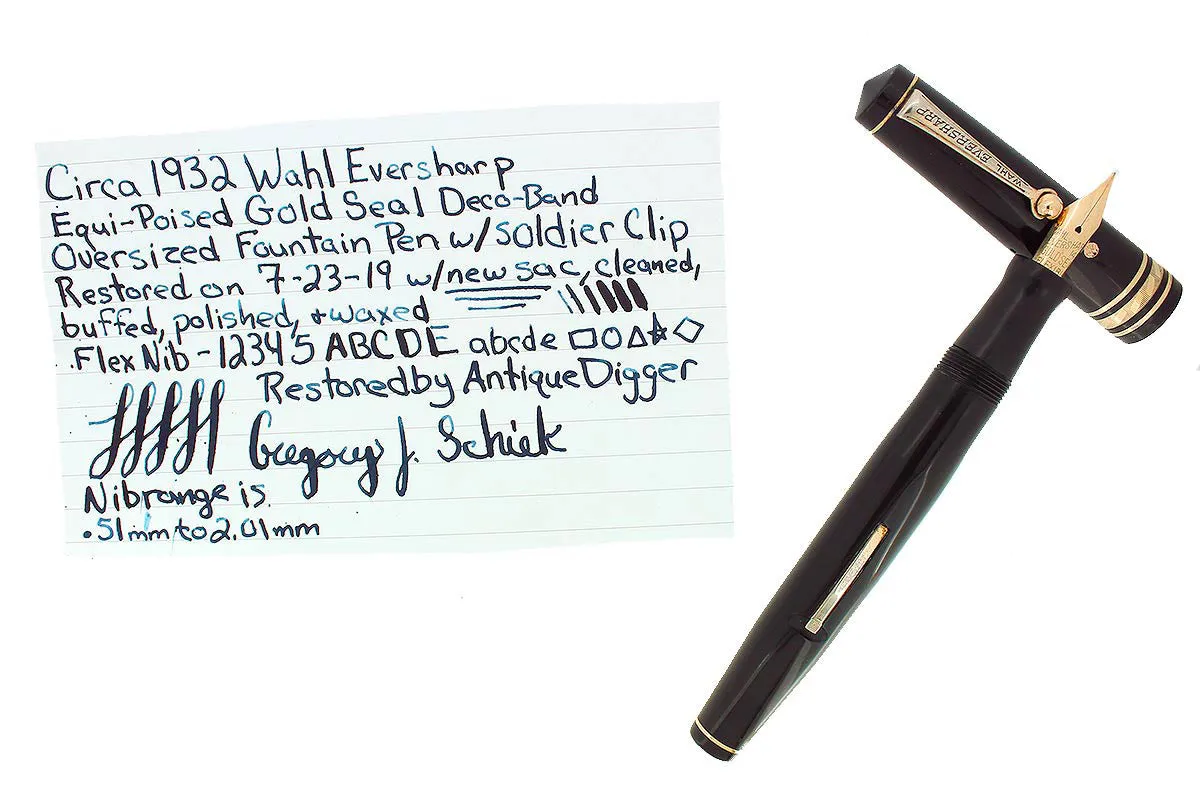 Circa 1932 Wahl Eversharp
Equi-Poised Gold Seal Deco-Band
Oversized Fountain Pen w/ Soldier Clip
Restored on 7-23-19 w/ new sac, cleaned,
buffed, polished, + waxed
Flex Nib - 12345 ABCDE abcde
Restored by AntiqueDigger
Gregory J. Schiek
Nib range is
.51mm to 2.01mm
WAHL EVERSHARP
EVERSHARP